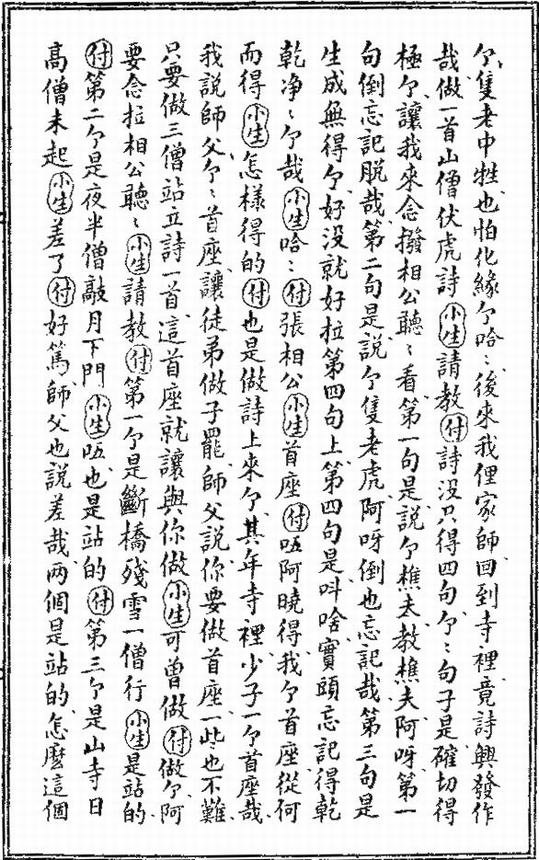 勹隻老中牲也怕化緣勹哈〻後來我俚家師回到寺裡竟詩興發作
哉做一首山僧伏虎詩小生請教付詩没只得四句勹〻句子是確切得
極勹讓我來念撥相公聽〻看第一句是説勹樵夫教樵夫阿呀第一
句倒忘記脱哉第二句是説勹隻老虎阿呀倒也忘記哉第三句是
生成無得勹好没就好拉第四句上第四句是叫啥實頭忘記得乾
乾净〻勹哉小生哈〻付張相公小生首座付㕶阿曉得我勹首座從何
而得小生怎樣得的付也是做詩上來勹其年寺裡少子一勹首座哉
我説師父勹〻首座讓徒弟做子罷師父説你要做首座一些也不難
只要做三僧站立詩一首這首座就讓與你做小生可曾做付做勹阿
要念拉相公聽〻小生請教付第一勹是斷橋殘雪一僧行小生是站的
付第二勹是夜半僧敲月下門小生㕶也是站的付第三勹是山寺日
高僧未起小生差了付好篤師父也説差哉两個是站的怎麽這個